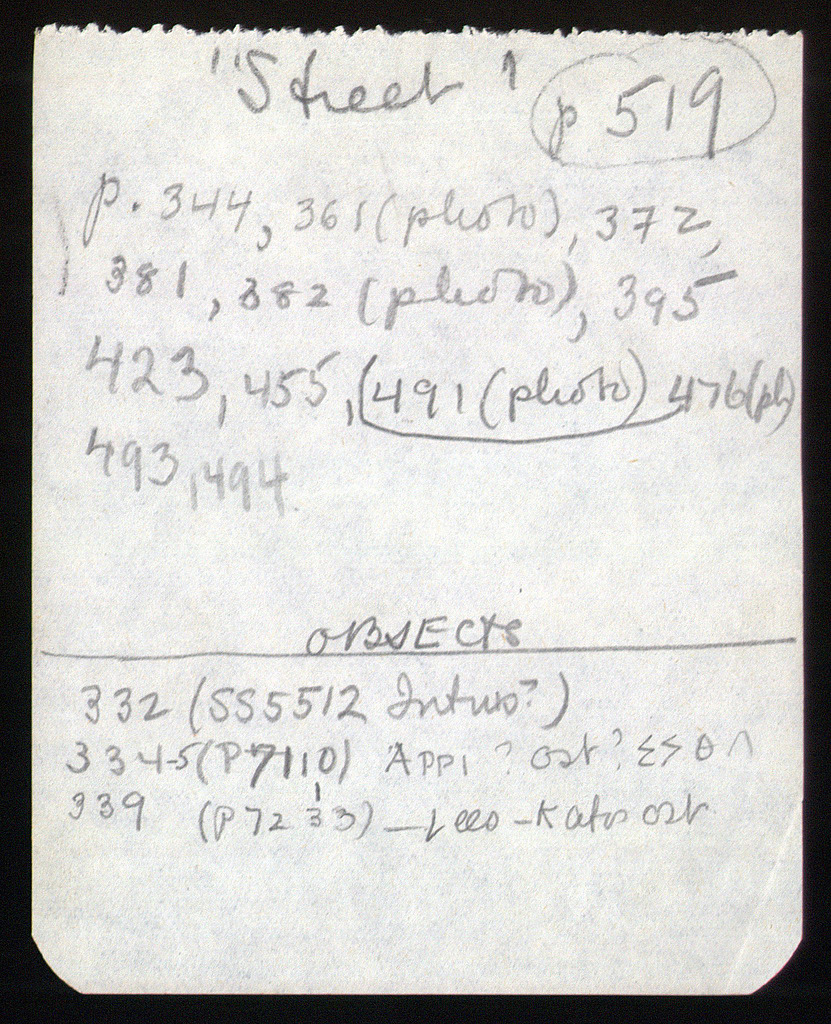 "Street" p 519
p. 344, 361 (photo), 372,
381, 382 (photo), 395
423, 455, (491 (photo) 476 (ph)
493, 494
OBJECTS
332 (SS5512 Intrus?)
334-5 (P7110) APPI ? Ost?
339 (P7233) — ost